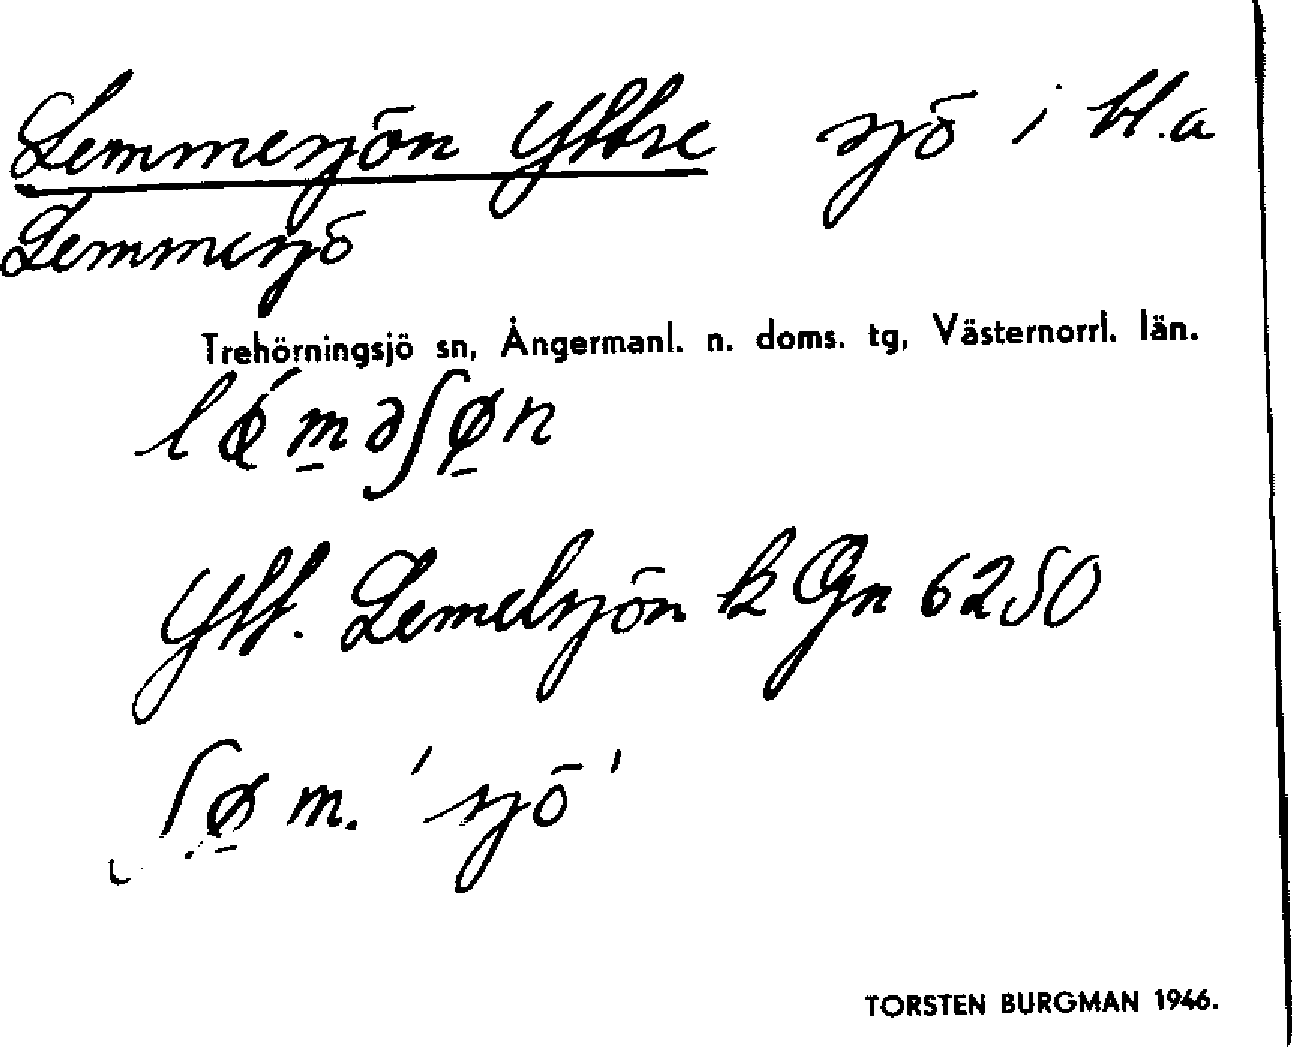 Lemmesjön Yttre sjö i bl.a
Lemmesjö
Trehörningsjö sn, Ångermanl. n. doms. tg, Västernorrl. län.
lǿm̱əʃø̱n
Ytt. Lemelsjön k Gn 6250
ʃø̱ m. 'sjö'
TORSTEN BURGMAN 1946.